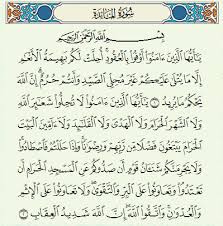 سُورَةُ الْمَائِدَةِ
بِسْمِ اللَّهِ الرَّحْمَٰنِ الرَّحِيمِ
يَا أَيُّهَا الَّذِينَ ءَامَنُوا أَوْفُوا بِالْعُقُودِ أُحِلَّتْ لَكُم بَهِيمَةُ الْأَنْعَامِ
إِلَّا مَا يُتْلَىٰ عَلَيْكُمْ غَيْرَ مُحِلِّي الصَّيْدِ وَأَنتُمْ حُرُمٌ إِنَّ اللَّهَ
يَحْكُمُ مَا يُرِيدُ ١ يَا أَيُّهَا الَّذِينَ ءَامَنُوا لَا تُحِلُّوا شَعَائِرَ اللَّهِ
وَلَا الشَّهْرَ الْحَرَامَ وَلَا الْهَدْيَ وَلَا الْقَلَائِدَ وَلَا آمِّينَ الْبَيْتَ
الْحَرَامَ يَبْتَغُونَ فَضْلًا مِّن رَّبِّهِمْ وَرِضْوَانًا وَإِذَا حَلَلْتُمْ فَاصْطَادُوا
وَلَا يَجْرِمَنَّكُمْ شَنَآنُ قَوْمٍ أَن صَدُّوكُمْ عَنِ الْمَسْجِدِ الْحَرَامِ أَن
تَعْتَدُوا وَتَعَاوَنُوا عَلَى الْبِرِّ وَالتَّقْوَىٰ وَلَا تَعَاوَنُوا عَلَى الْإِثْمِ
وَالْعُدْوَانِ وَاتَّقُوا اللَّهَ إِنَّ اللَّهَ شَدِيدُ الْعِقَابِ ٢